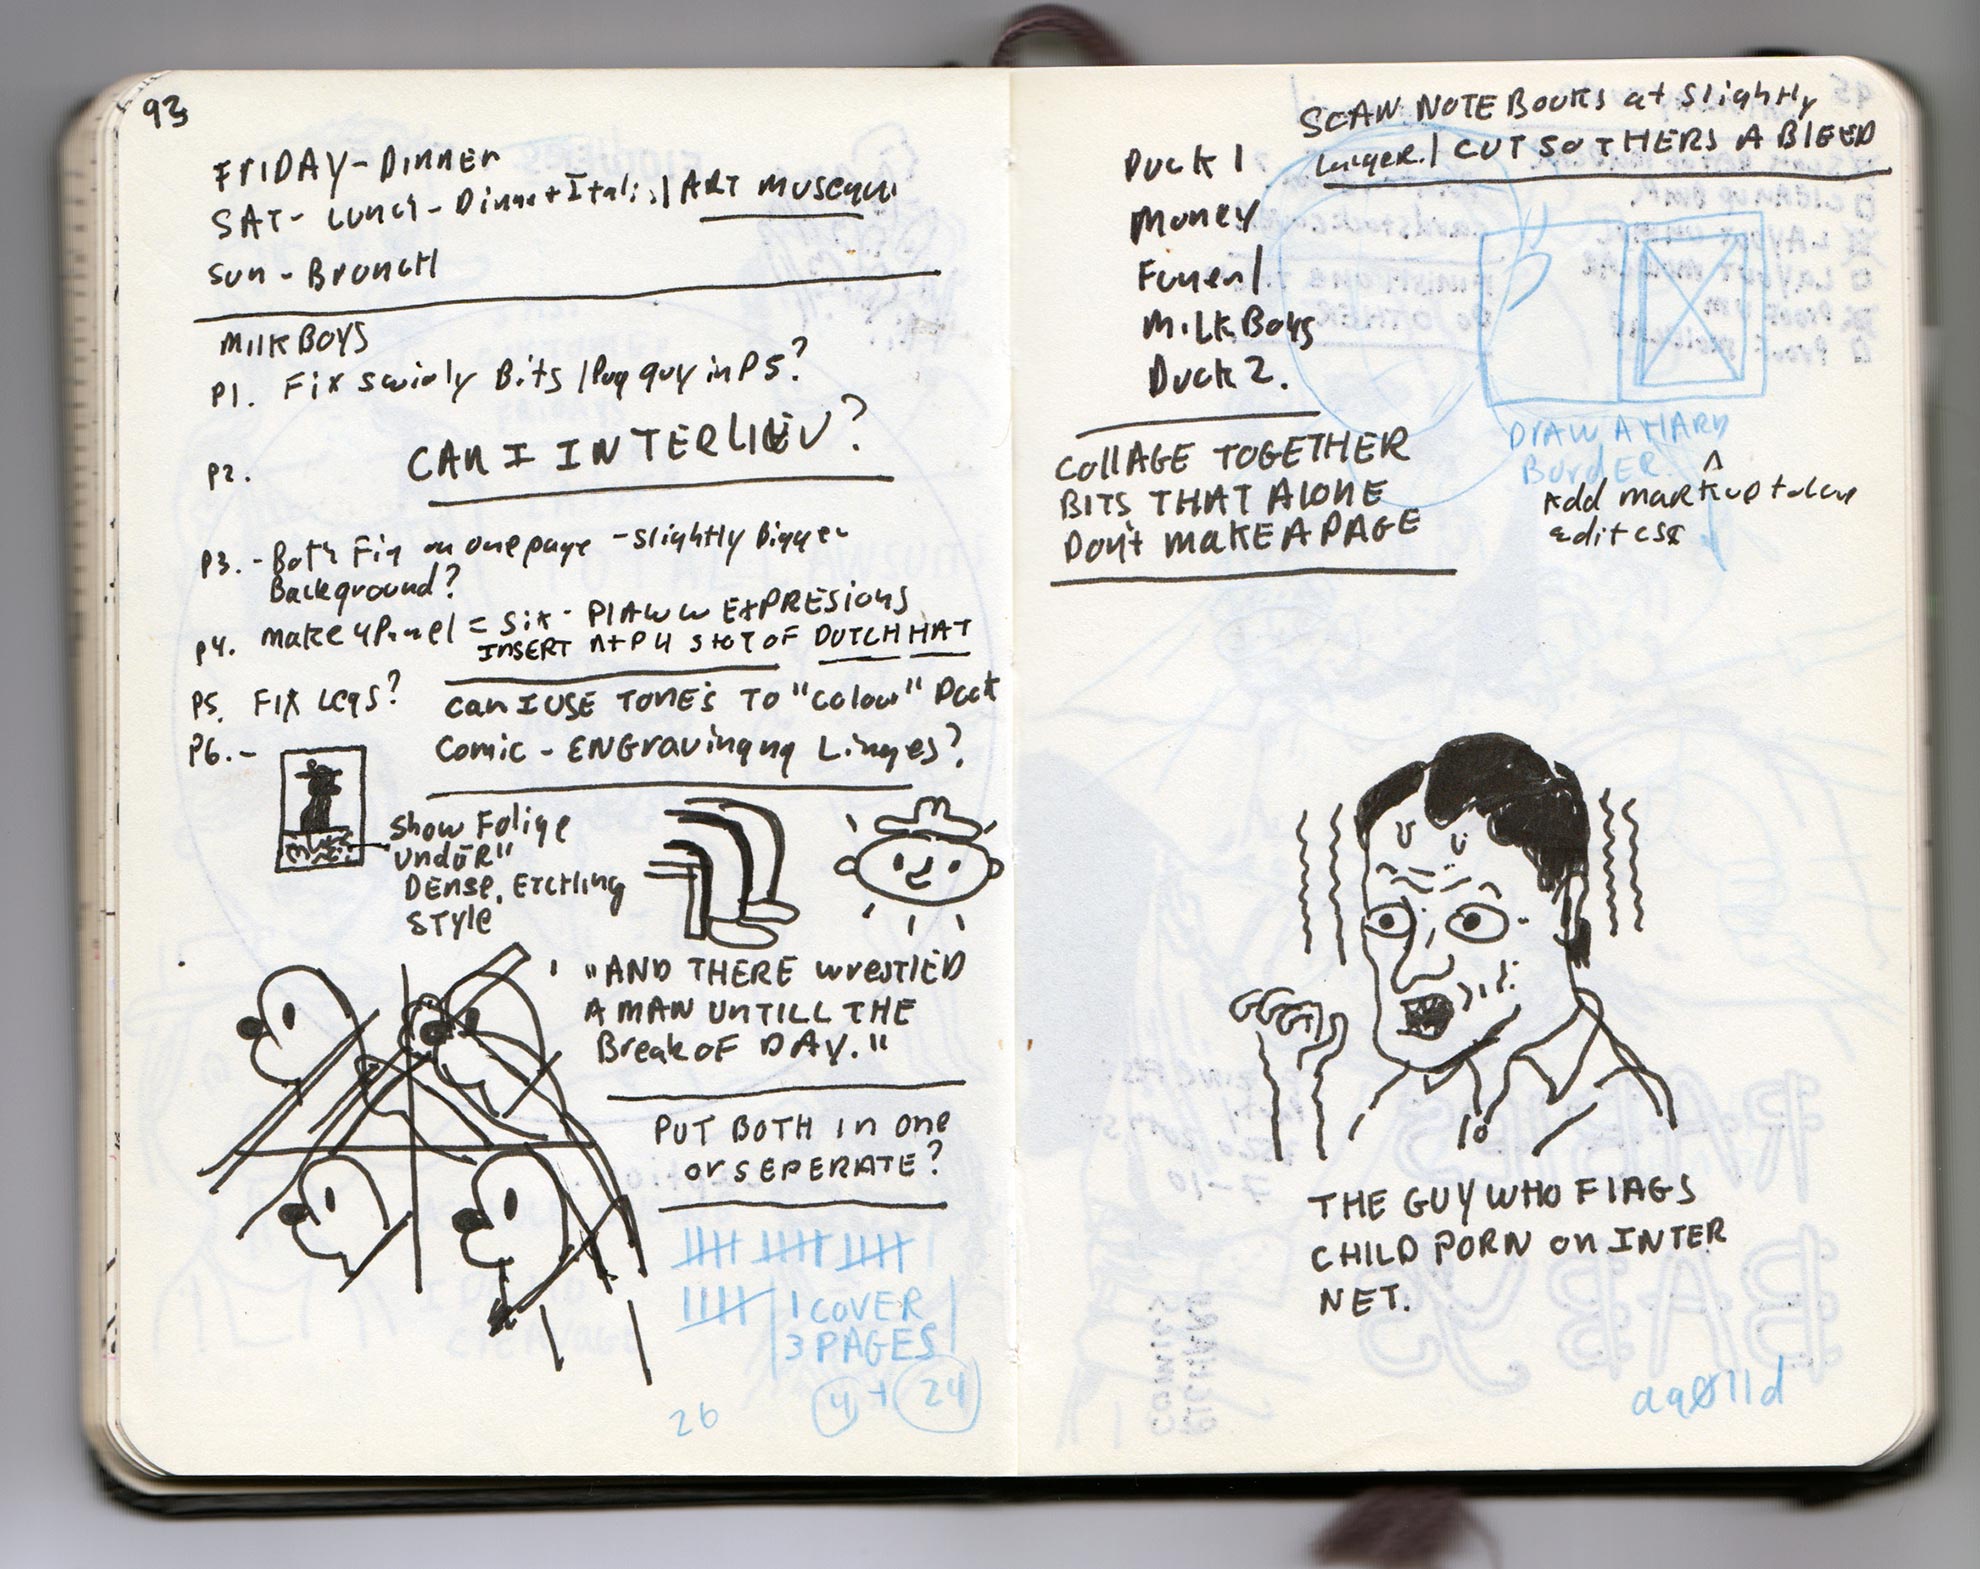 93
FRIDAY - DINNER
SAT - LUNCH - Dinner + Itali. | ART MUSEQUM
SUN - BRONCH
MILK BOYS
P1. Fix swirly Bits / Pug guy in P5?
P2. CAN I INTERLIEU?
P3. - Both Fig on one page - slightly bigger
Background?
P4. make 4 Panel = six - PlAWW EXPRESIONS
INSERT AT P4 SHOT OF DUTCH HAT
P5. FIX LEGS?
can I USE TONE'S TO "Colour" Duck
P6. -
Comic - ENGravingng Linges?
show Folige
under"
DENSE, Etching
STYLE
"AND THERE wrestlED
A MAN UNTILL THE
Break OF DAY."
PUT BOTH in one
or SEPERATE?
1 COVER
3 PAGES
4 + 24
26
SCAN NOTEBooks at slightly
Larger. / CUT SO THERS A BLEED
Duck 1
Money
Funeral
MilkBoys
Duck 2.
DRAW A HARD
BORDER.
Add markup to
edit css
CollAGE TOGETHER
BITS THAT AlONE
Don't MAKE A PAGE
THE GUY WHO FlAGS
CHILD PORN on INTER
NET.